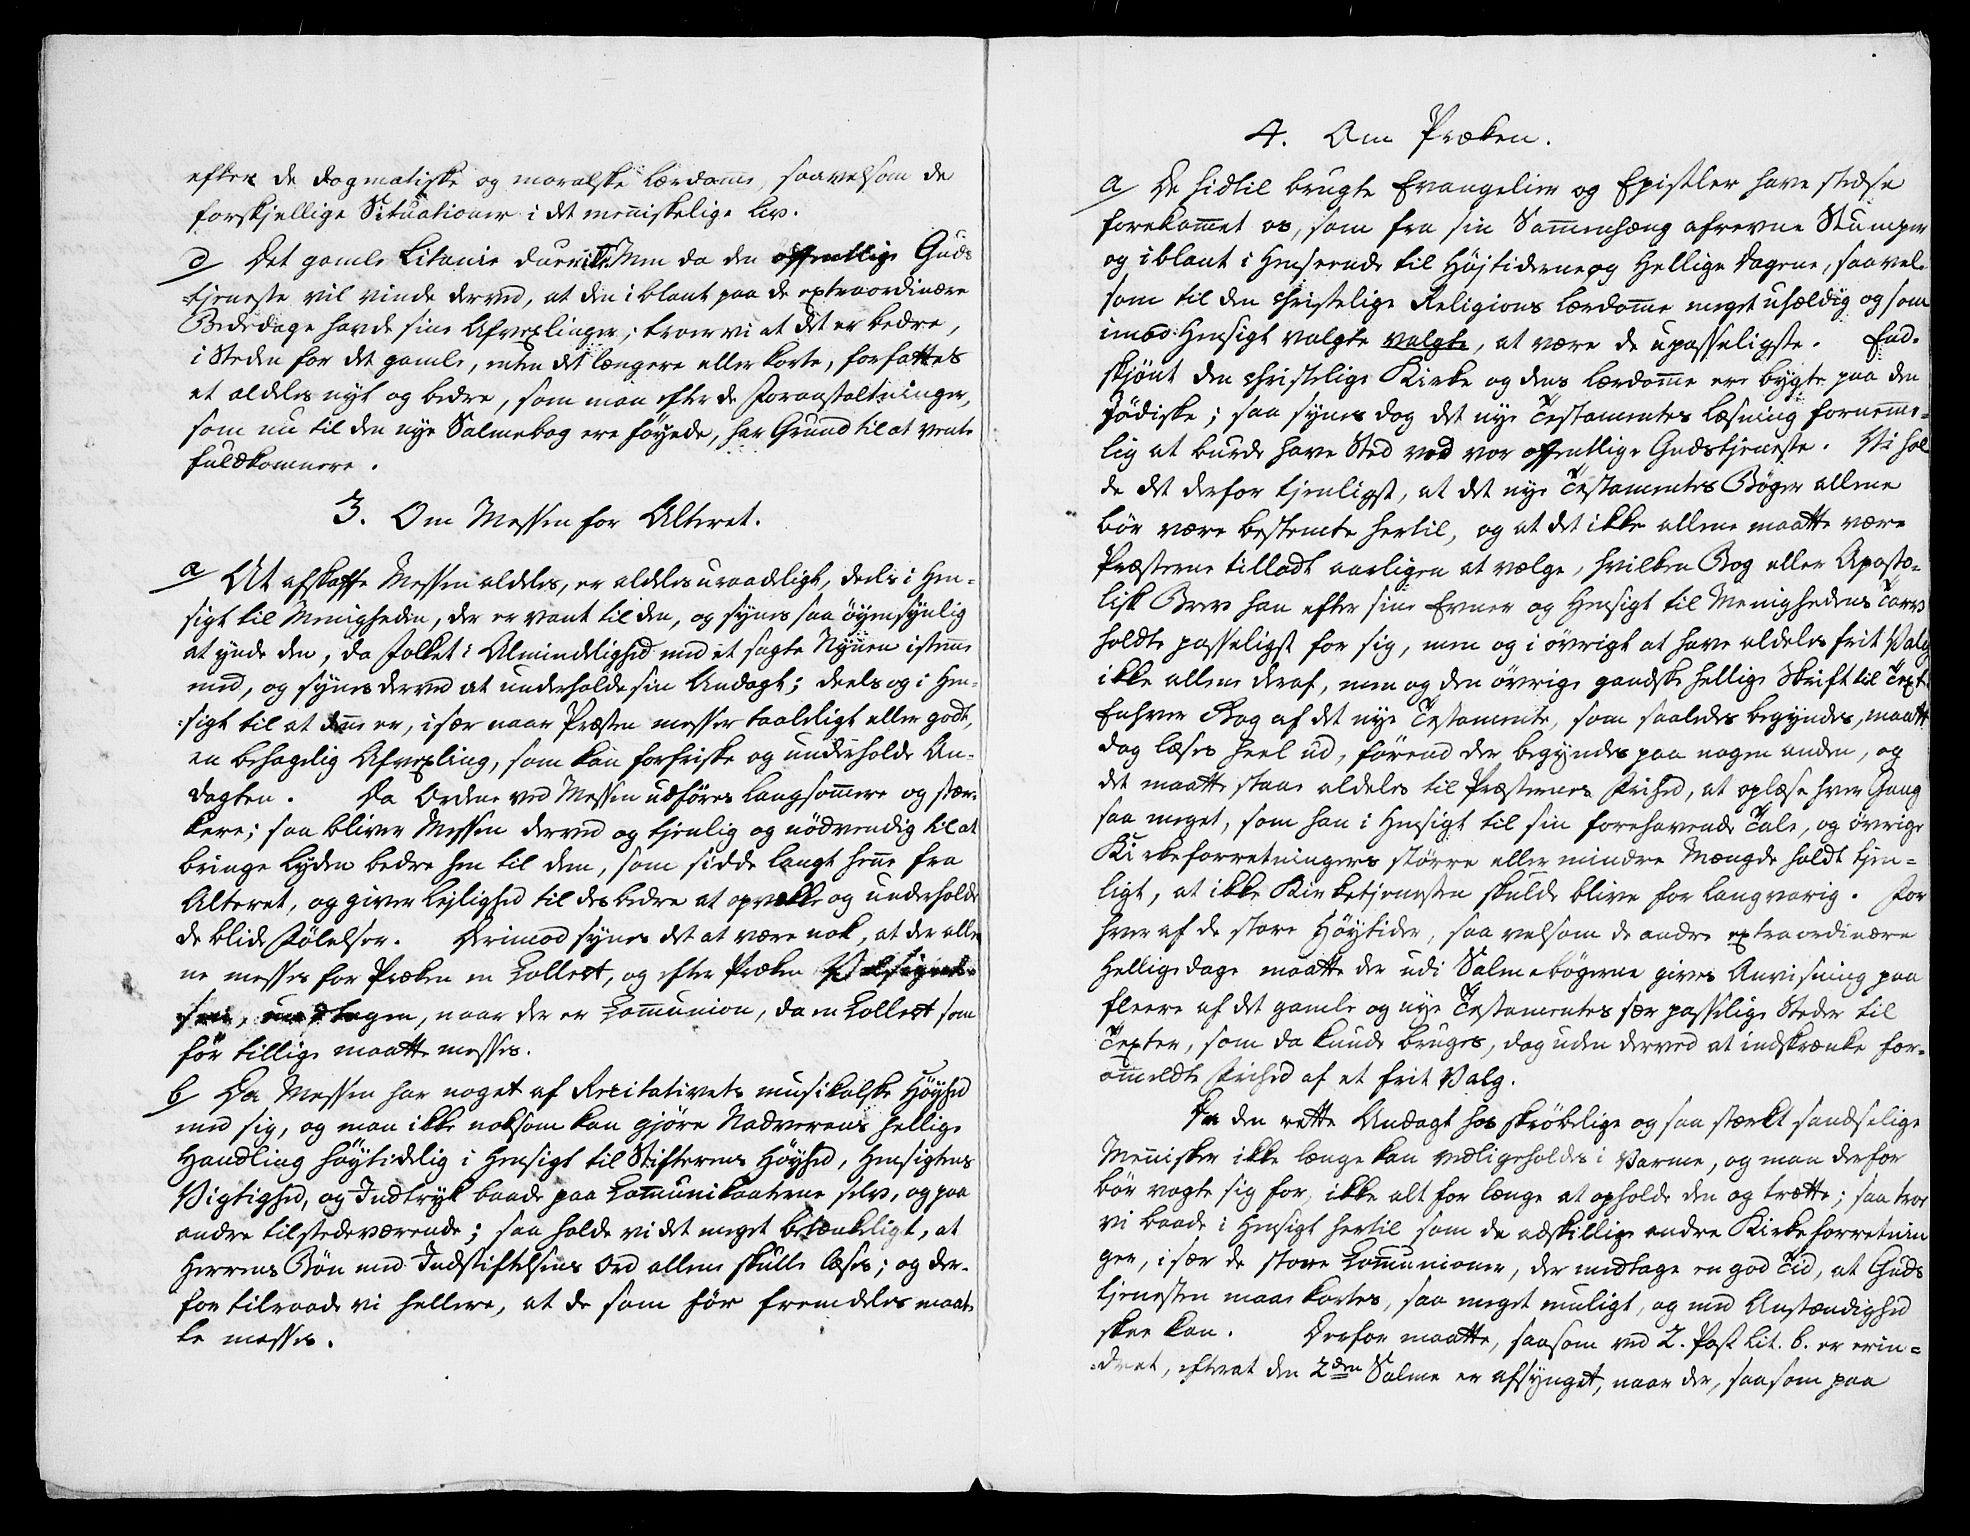 efter de dogmatiske og moralske Lærdomme, saavelsom de
forskjellige Situationer i det menniskelige Liv.
c/ Det gamle Litanie duer ikke. Men da den offentlige Guds
tjeneste vil vinde derved, at den iblant paa de extraordinære
Bededage havde sine Afvexlinger; troer vi at det er bedre,
i Steden for det gamle, enten det længere eller korte, forfattes
et aldeles nyt og bedre, som man efter de Foranstaltninger,
som nu til den nye Salmebog ere föyede, har Grund til at vente
fuldkomnere.
3. Om Messen for Alteret.
a/ At afskaffe Messen aldeles, er aldeles uraadeligt, deels i Hen-
sigt til Menigheden, der er vant til den, og synes saa öyensynlig
at ynde den, da Folket i Almindelighed med et sagte Nynnen istemme
med, og synes derved at underholde sin Andagt; deels og i Hen-
sigt til at den er, især naar Præsten messer taaleligt eller godt,
en behagelig Afvexling, som kan forfriske og underholde An-
dagten. Da Ordene ved Messen udföres langsommere og stær-
kere; saa bliver Messen derved og tjenlig og nödvendig til at
bringe Lyden bedre hen til dem, som sidde langt henne fra
Alteret, og giver Lejlighed til des bedre at opvække og underholde
de blide Fölelser. Derimod synes det at være nok, at der alle
ne messes for Præken en Collect, og efter Præken Velsignel-
sen, undtagen, naar der er Communion, da en Collect som
för tillige maatte messes.
b/ Da Messen har noget af Recitativets musikalske Höyhed
med sig, og man ikke noksom kan gjöre Nadverens hellige
Handling höytidelig i Hensigt til Stifterens Höyhed, Hensigtens
Vigtighed, og Indtryk baade paa Communikanterne selv, og paa
andre tilstedeværende; saa holde vi det meget betænkeligt, at
Herrens Bön med Indstiftelsens Ord allene skulle læses; og der-
for tilraade vi hellere, at de som för fremdeles maat
te messes.
4. Om Præken.
a/ De hidtil brugte Evangelier og Epistler have stedse
forekommet os, som fra sin Sammenhæng afrevne Stumper
og iblant i Henseende til Höjtiderne og Hellige Dagene, saavel-
som til den christelige Religions Lærdomme meget uheldig og som
imod Hensigt valgte valgte, at være de upasseligste. End-
skjönt den christelige Kirke og dens Lærdomme ere bygte paa den
Jödiske; saa synes dog det nye Testamentes Læsning fornemme-
lig at burde have Sted ved vor offentlige Gudstjeneste. Vi hol
de det derfor tjenligst, at det nye Testamentes Böger allene
bör være bestemte hertil, og at det ikke allene maatte være
Præsterne tilladt aarligen at vælge, hvilken Bog eller Aposto-
lisk Brev han efter sine Evner og Hensigt til Menighedens Tarv
holdte passeligst for sig, men og i övrigt at have aldeles frit Valg
ikke allene deraf, men og den övrige gandske hellige Skrift til Text.
Enhver Bog af det nye Testamente, som saaledes begyndes, maatte
dog læses heel ud, förend der begyndes paa nogen anden, og
det maatte staae aldeles til Præsternes Frihed, at oplæse hver Gang
saa meget, som han i Hensigt til sin forehavende Tale, og övrige
Kirkeforretningers större eller mindre Mængde holdt tjen-
ligt, at ikke Kirketjenesten skulde blive for langvarig. For
hver af de store Höytider, saa velsom de andre extraordinære
Hellige dage maatte der udi Salmebögerne gives Anvisning paa
fleere af det gamle og nye Testamentes sær passelige Steder til
Texter, som da kunde bruges, dog uden derved at indskrænke for-
ommeldte Frihed af et frit Valg.
Da den rette Andagt hos skröbelige og saa stærkt sandselige
Mennisker ikke længe kan vedligeholdes i Varme, og man derfor
bör vogte sig for, ikke alt for længe at opholde den og trætte; saa troe
vi baade i Hensigt hertil som de adskillige andre Kirkeforretnin
ger, især de store Communioner, der medtage en god Tid, at Guds
tjenesten maae kortes, saa meget muligt, og med Anstændighed
skee kan. Derfor maatte, saasom ved 2. Post Lit. b. er erin-
dret, efterat den 2den Salme er afsynget, naar der, saasom paa